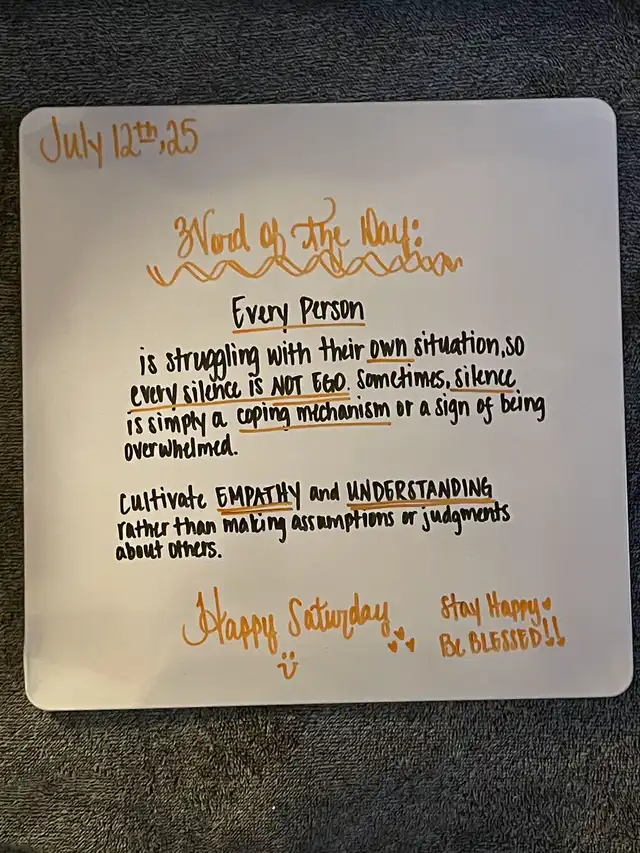 July 12th, 25
Word of the Day:
Every Person
is struggling with their own situation, so
every silence is NOT EGO. Sometimes, silence
is simply a coping mechanism or a sign of being
overwhelmed.
Cultivate EMPATHY and UNDERSTANDING
rather than making assumptions or judgments
about others.
Happy Saturday
Stay Happy
Be BLESSED!!